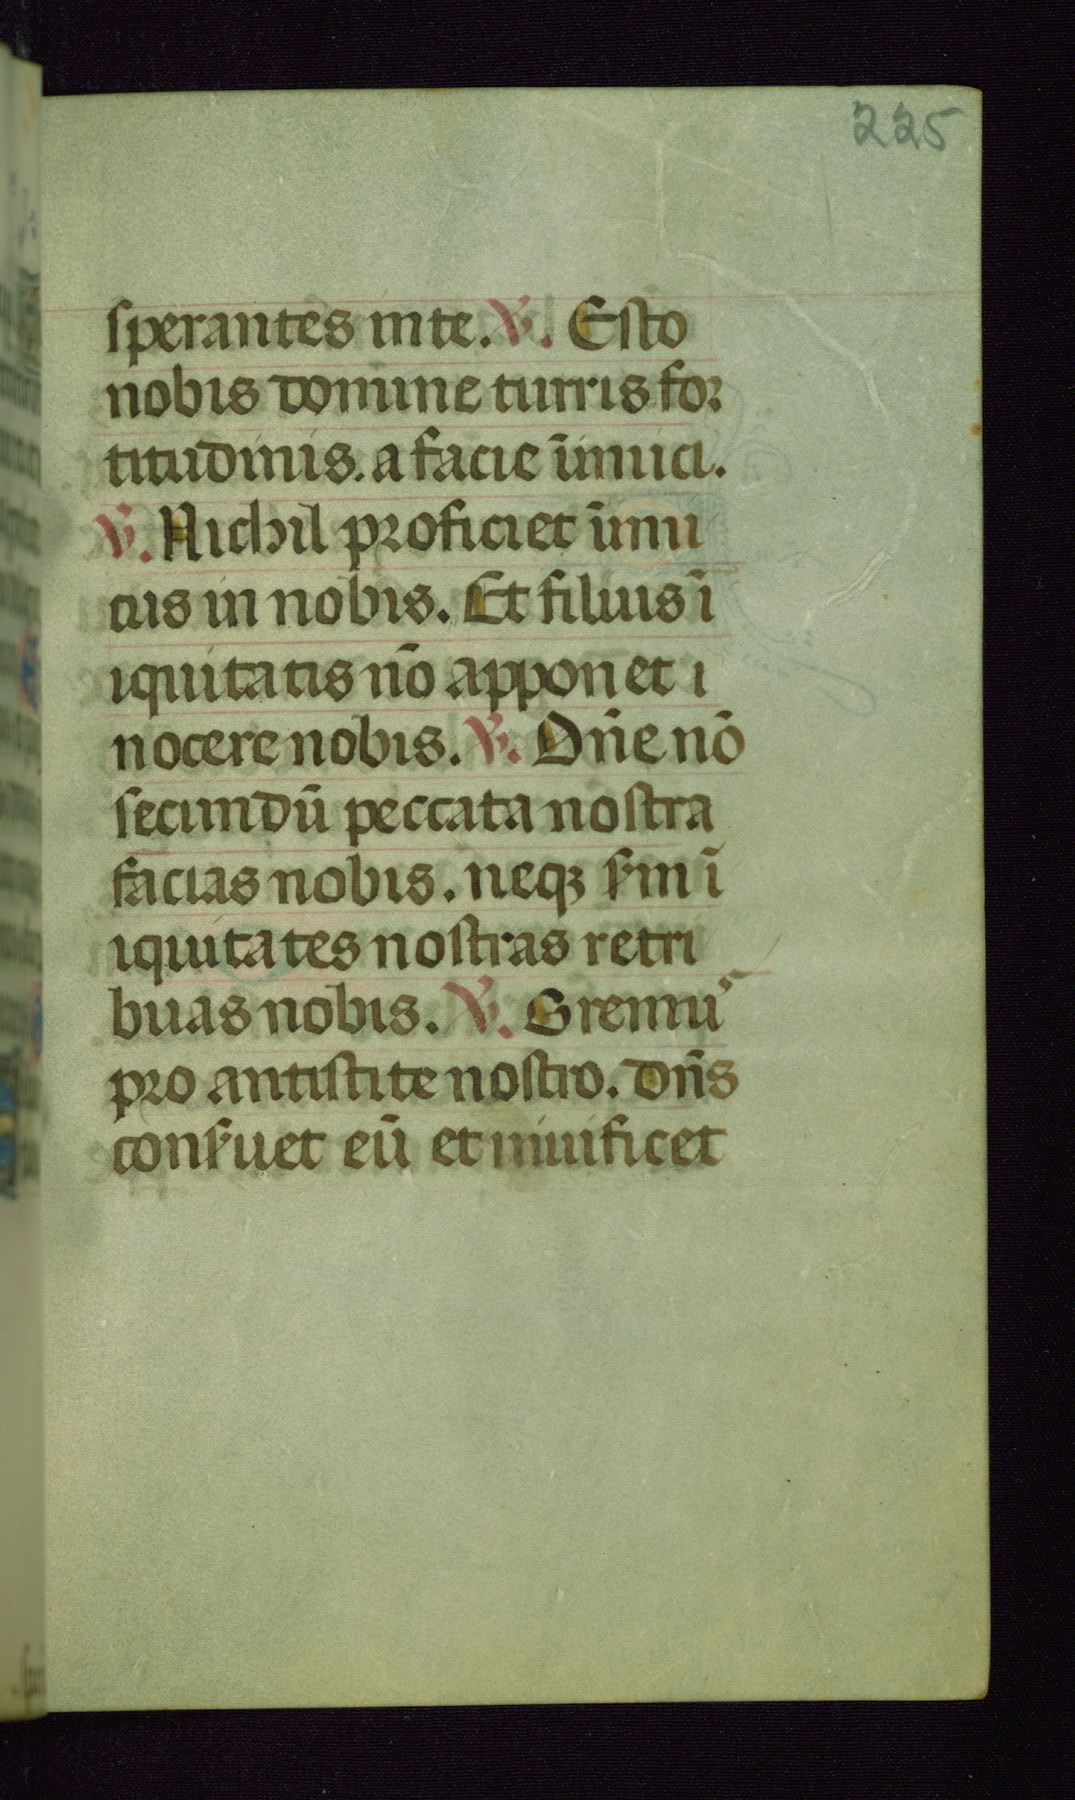 225
sperantes in te. ℣. Esto
nobis domine turris for
titudinis. a facie īimici.
℣. Nichil proficiet īimi
cus in nobis. Et filius ī
iquitatis nō apponet
nocere nobis. ℣. Dn̄e nō
secundū peccata nostra
facias nobis. neqꝫ ſm ī
iquitates nostras retri
buas nobis. ℣. Oremuꝰ
pro antistite nostro. dn̄s
conſuet eū et uiuificet